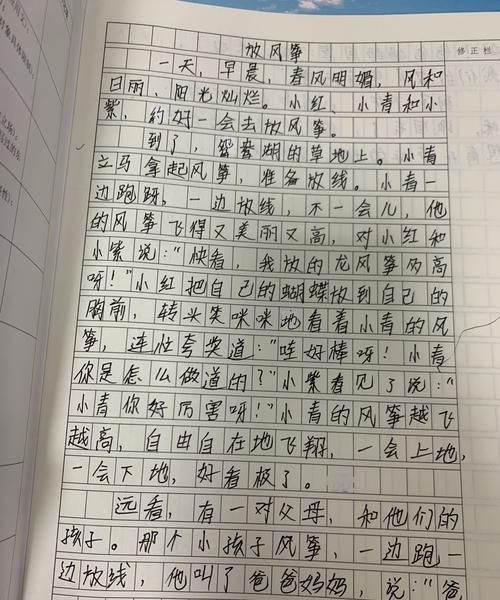 放风筝
修正栏
一天，早晨，春风明媚，风和
日丽，阳光灿烂。小红、小青和小
紫，约好一会去放风筝。
到了，鸳鸯湖的草地上。小青
立马拿起风筝，准备放线。小青一
边跑呀，一边放线，不一会儿，他
的风筝飞得又美丽又高，对小红和
小紫说：“快看，我放的龙风筝多高
呀！”小红把自己的蝴蝶放到自己的
胸前，转头笑咪咪地看着小青的风
筝，连忙夸奖道：“哇好棒呀！小青
你是怎么做道的？”小紫看见了说：“
小青你好厉害呀！”小青的风筝越飞
越高，自由自在地飞翔，一会上地，
一会下地，好看极了。
远看，有一对父母，和他们的
孩子。那个小孩子风筝，一边跑一
边放线，他叫了爸爸妈妈，说：“爸